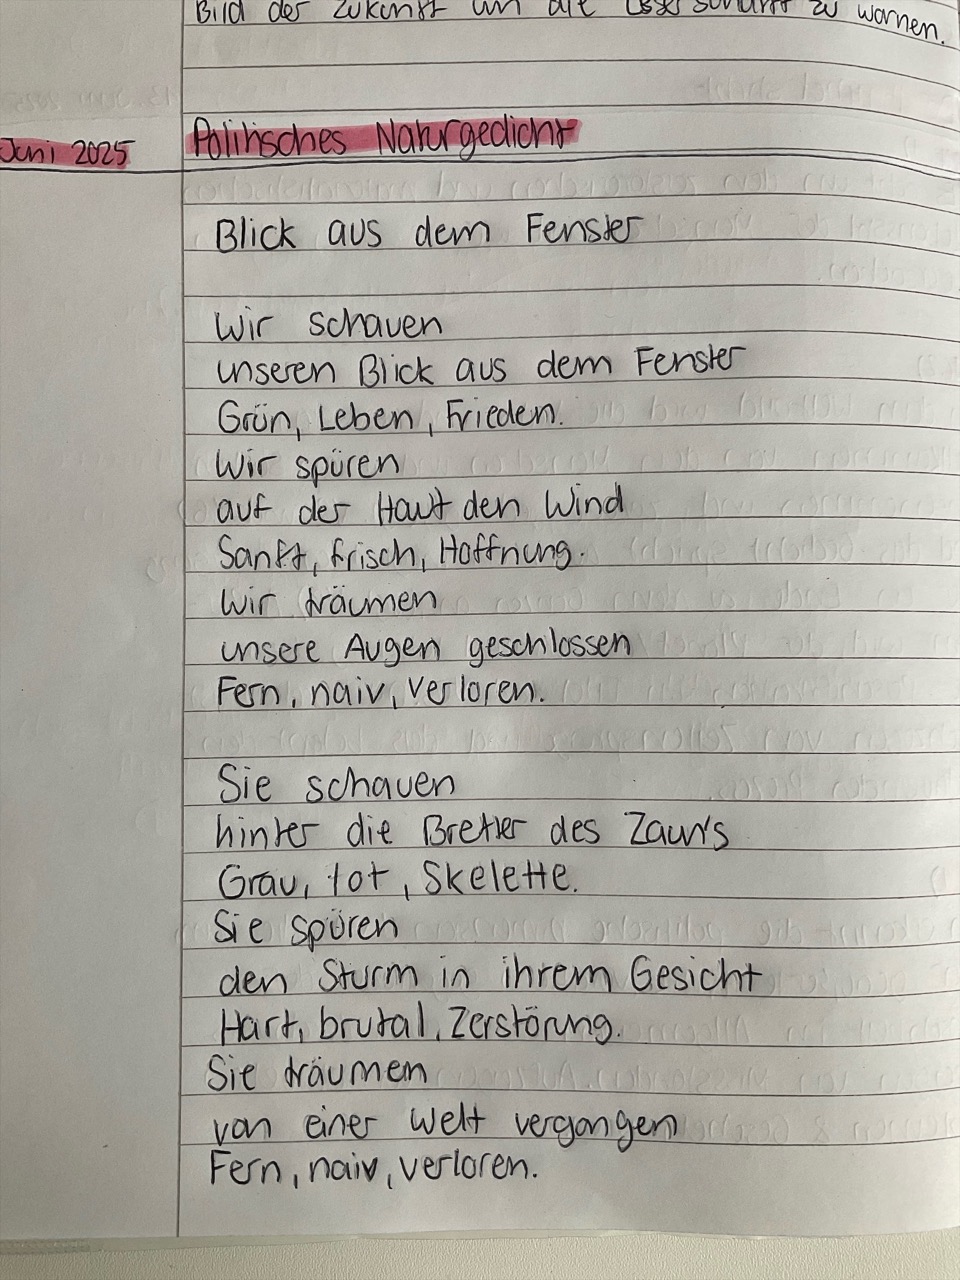 Bild der Zukunft um die Leserschaft zu warnen.
Juni 2025 Politisches Naturgedicht
Blick aus dem Fenster
Wir schauen
unseren Blick aus dem Fenster
Grün, Leben, Frieden.
Wir spüren
auf der Haut den Wind
Sanft, frisch, Hoffnung.
Wir träumen
unsere Augen geschlossen
Fern, naiv, verloren.
Sie schauen
hinter die Bretter des Zaun's
Grau, tot, Skelette.
Sie spüren
den Sturm in ihrem Gesicht
Hart, brutal, Zerstörung.
Sie träumen
von einer Welt vergangen
Fern, naiv, verloren.